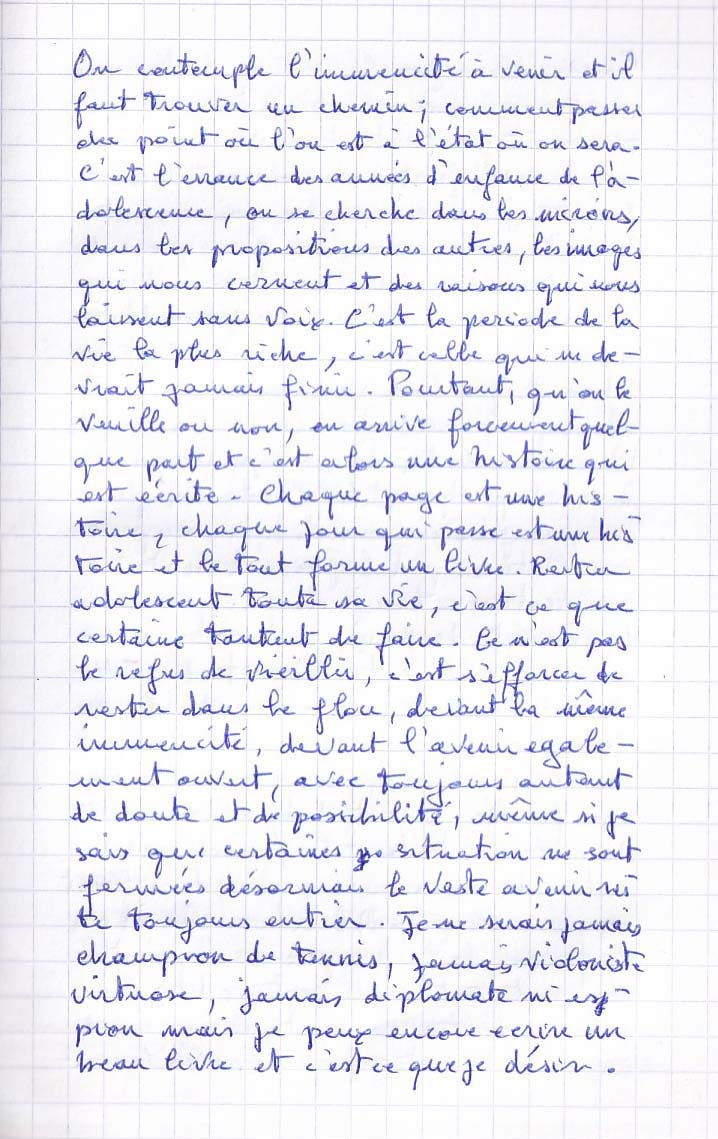 On contemple l'immencité à venir et il
faut trouver un chemin ; comment passer
du point où l'on est à l'état où on sera.
C'est l'errance des années d'enfance de l'a-
dolescence, on se cherche dans les miroirs,
dans les propositions des autres, les images
qui nous cernent et des raisons qui nous
laissent sans voix. C'est la periode de la
vie la plus riche, c'est celle qui ne de-
vrait jamais finir. Pourtant, qu'on le
veuille ou non, on arrive forcement quel-
que part et c'est alors une histoire qui
est écrite. Chaque page est une his-
toire, chaque jour qui passe est une his
toire et le tout forme un livre. Rester
adolescent toute sa vie, c'est ce que
certains tentent de faire. Ce n'est pas
le refus de vieillir, c'est s'efforcer de
rester dans le flou, devant la même
immencité, devant l'avenir egale-
ment ouvert, avec toujours autant
de doute et de possibilité, même si je
sais que certaines situation ne sont
fermées désormais le vaste avenir res
te toujours entier. Je ne serais jamais
champion de tennis, jamais violoniste
virtuose, jamais diplomate ni es-
pion mais je peux encore ecrire un
beau livre et c'est ce que je désir.